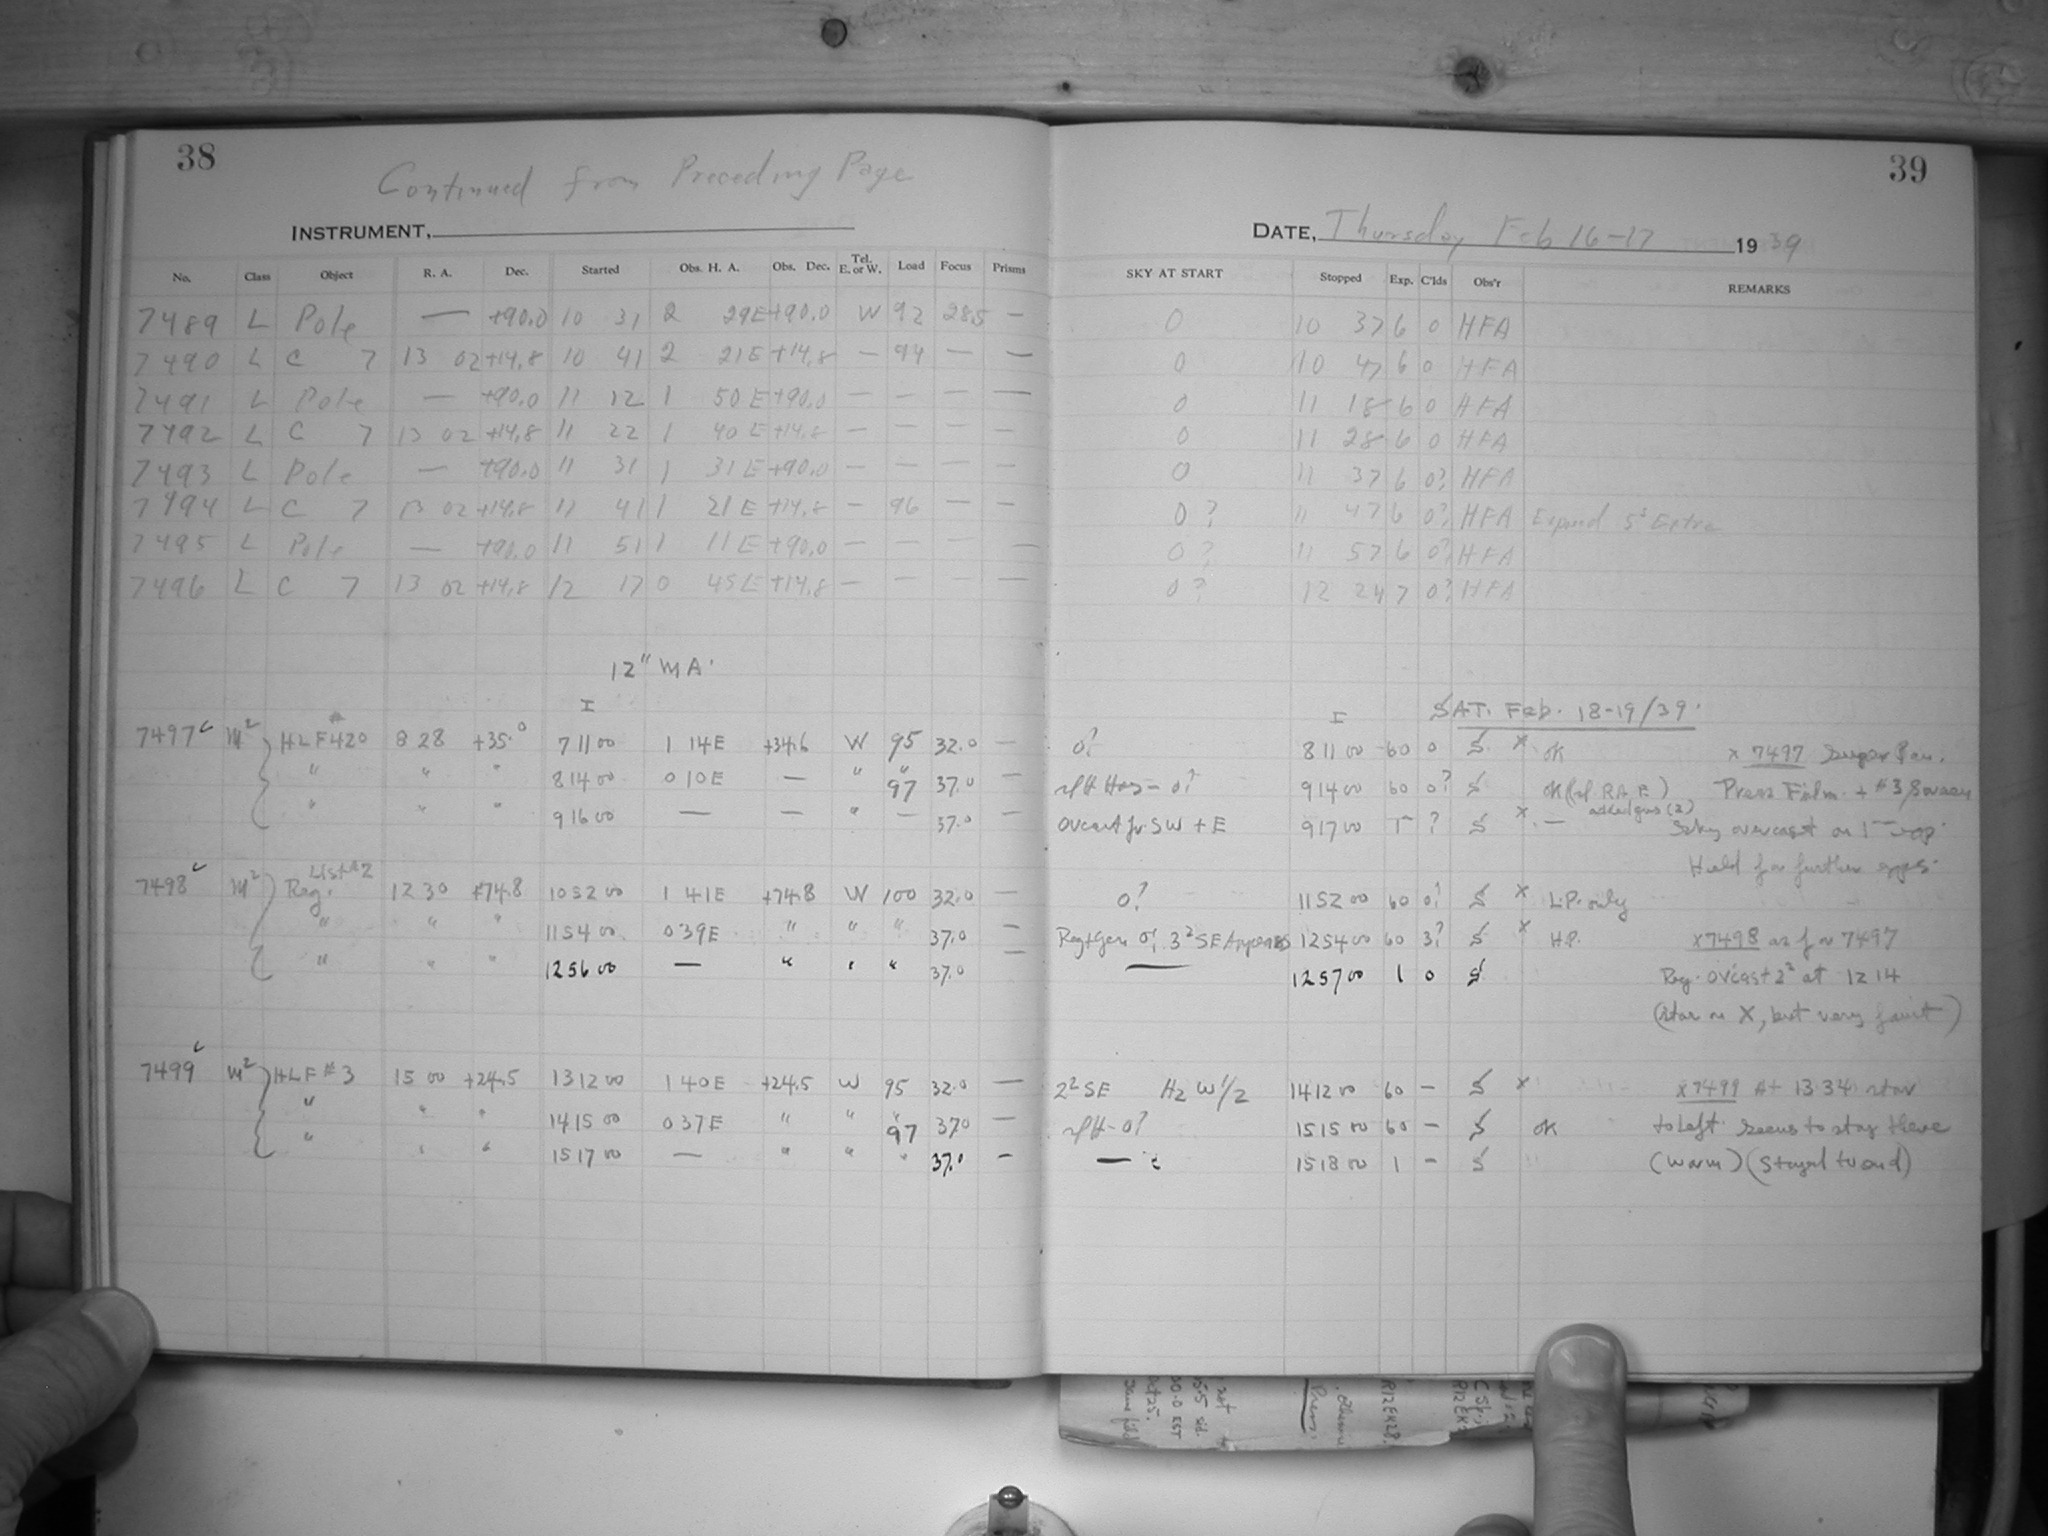 38
Continued from Preceding Page
INSTRUMENT,
No. Class Object R. A. Dec. Started Obs. H. A. Obs. Dec. Tel. E. or W. Load Focus Prisms
7489 L Pole — +90.0 10 31 2 29E +90.0 W 92 28.5 —
7490 L C 7 13 02 +14.8 10 41 2 21E +14.8 — 94 — —
7491 L Pole — +90.0 11 12 1 50E +90.0 — — — —
7492 L C 7 13 02 +14.8 11 22 1 40E +14.8 — — — —
7493 L Pole — +90.0 11 31 1 31E +90.0 — — — —
7494 L C 7 13 02 +14.8 11 41 1 21E +14.8 — 96 — —
7495 L Pole — +90.0 11 51 1 11E +90.0 — — — —
7496 L C 7 13 02 +14.8 12 17 0 45E +14.8 — — — —
12" MA.
I
7497 M² HLF#420 8 28 +35.0 7 11 00 1 14E +34.6 W 95 32.0 —
" " " 8 14 00 0 10E — " " 97 37.0 —
" " " 9 16 00 — — " — 37.0
7498 M² Reg. List#2 12 30 +74.8 10 52 00 1 41E +74.8 W 100 32.0 —
" " " 11 54 00 0 39E " " " 37.0 —
" " " 12 56 00 — " " " 37.0
7499 M² HLF #3 15 00 +24.5 13 12 00 1 40E +24.5 W 95 32.0 —
" " " 14 15 00 0 37E " " " 97 37.0 —
" " " 15 17 00 — " " " 37.0 —
39
DATE, Thursday Feb 16-17 1939
SKY AT START Stopped Exp. C'lds Obs'r REMARKS
0 10 37 6 0 HFA
0 10 47 6 0 HFA
0 11 18 6 0 HFA
0 11 28 6 0 HFA
0 11 37 6 0? HFA
0? 11 47 6 0? HFA Exposed 5ˢ Extra
0? 11 57 6 0? HFA
0? 12 24 7 0? HFA
I SAT. Feb. 18-19/39.
0? 8 11 00 60 0 S x OK x 7497 Super Pan.
0? 9 14 00 60 0? S OK Press Film + #3
Overcast SW + E 9 17 00 1 ? S x — Sky overcast on
Held for further
0? 11 52 00 60 0? S x L.P. only
0? 3² SE Appears 12 54 00 60 3? S x H.P. x7498 as for 7497
— 12 57 00 1 0 S Reg. ovcast 2² at 12 14
(star on X, but very faint)
2² SE Hz W 1/2 14 12 00 60 — S x x7499 At 13.34 star
0? 15 15 00 60 — S OK to left seems to stay there
— 15 18 00 1 — S (warm) (stayed to end)